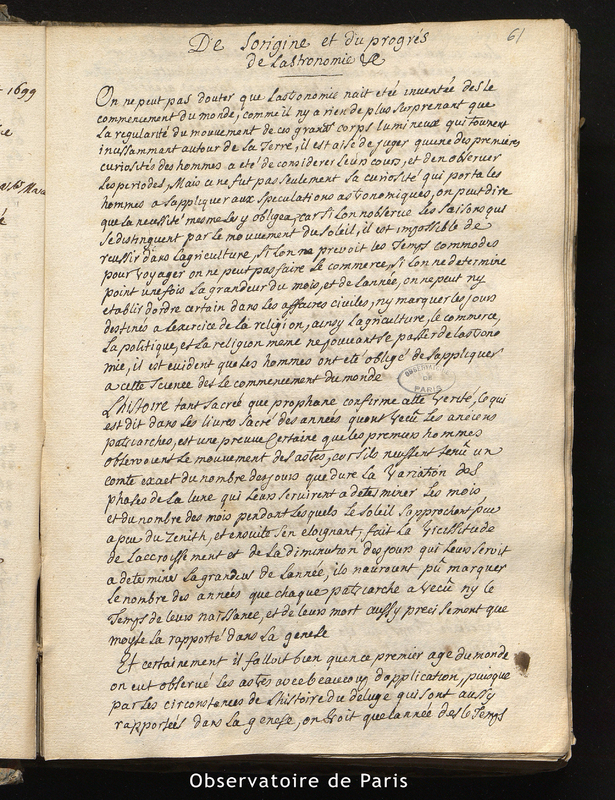 1699
61
De Lorigine et du progrés
de Lastronomie &c
On ne peut pas douter que Lastronomie nait eté inventée des le
commencement du monde, comme il ny a rien de plus surprenant que
La regularité du mouvement de ces grands corps lumineux qui tournent
incessamment autour de La Terre, il est aisé de juger quune des premieres
curiosités des hommes a eté de considerer Leur cours, et den observer
Les periodes, Mais ce ne fut pas seulement la curiosité qui porta les
hommes a sappliquer aux speculations astronomiques, on peut dire
que la necessité mesme Les y obligea, car si Lon nobserve Les saisons qui
se distinguent par le mouvement du soleil, il est impossible de
reussir dans Lagriculture, si Lon ne prevoit les Temps commodes
pour voyager on ne peut pas faire Le commerce, si Lon ne determine
point une fois La grandeur du mois, et de Lannée, on ne peut ny
etablir dordre certain dans les affaires civiles, ny marquer les jours
destinés a Lexercice de la religion, ainsy Lagriculture, le commerce,
La politique, et La religion meme ne pouvant se passer de Lastrono
mie, il est evident que les hommes ont eté obligé de sappliquer
a cette science des Le commencement du monde
Lhistoire tant sacrée que prophane confirme cette verité, ce qui
est dit dans Les livres sacré des années quont vecû Les anciens
patriarches, est une preuve certaine que les premiers hommes
observoient Le mouvement des astres, car sils neussent tenû un
comte exact du nombre des jours que dure la variation des
phases de La lune qui Leurs servirent a determiner Les mois,
et du nombre des mois pendant Lesquels Le soleil sapprochant peu
a peu du Zenith, et ensuite sen eloignant, fait La vicissitude
de Laccroissement et de La diminution des jours qui Leurs servit
a determiner La grandeur de Lannée, ils nauroient pû marquer
Le nombre des années que chaque patriarche a vecû ny le
Temps de leurs naissance, et de leurs mort aussy precisement que
moyse La rapporté dans La genese
Et certainement il falloit bien quen ce premier age du monde
on eut observé Les astres avec beaucoup dapplication, puisque
par Les circonstances de Lhistoire du deluge qui sont aussy
rapportées dans La genese, on voit que Lannée des ce Temps
OBSERVATOIRE
DE
PARIS
Observatoire de Paris